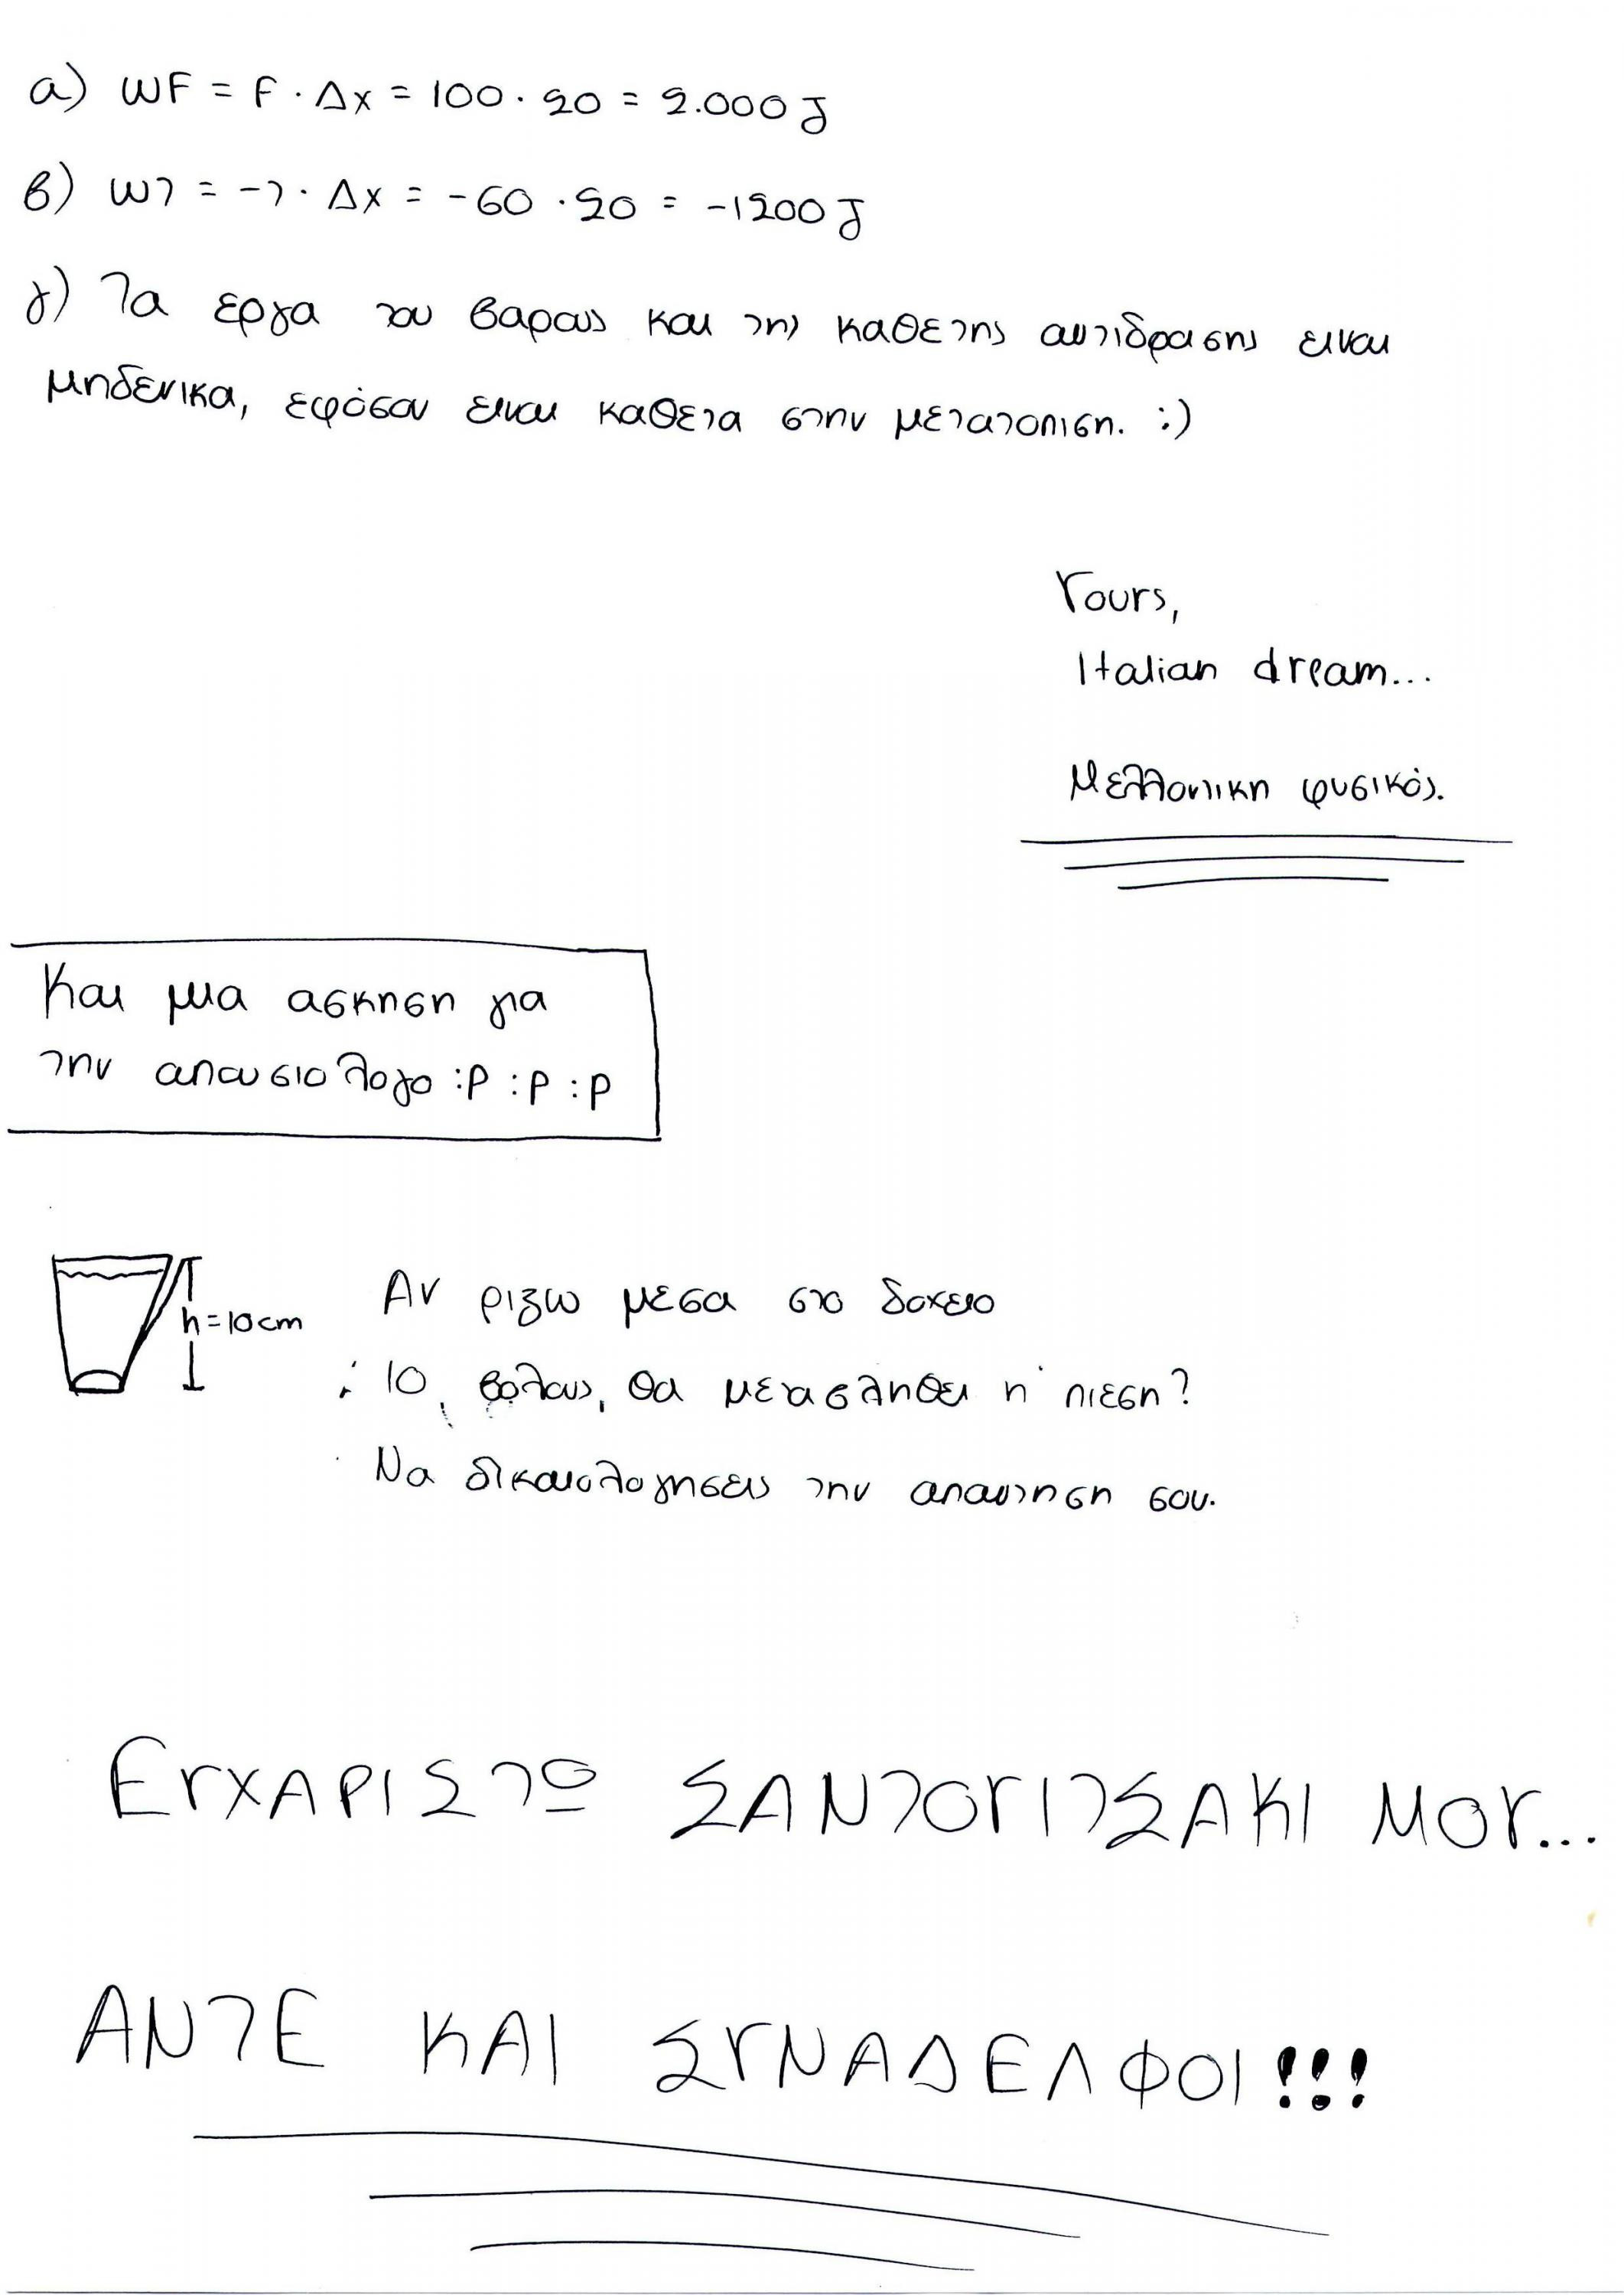 α) WF = F · Δx = 100 · 20 = 2.000 J
β) WT = -T · Δx = -60 · 20 = -1200 J
γ) Τα εργα του βαρους και της καθετης αντιδρασης ειναι
μηδενικα, εφόσον ειναι καθετα στην μετατοπιση. :)
Yours,
Italian dream...
Μελλοντικη φυσικός.
Και μια ασκηση για
την απουσιολογο :P :P :P
h = 10 cm
Αν ριξω μεσα στο δοχειο
10 βολους, θα μεταβληθει η πιεση?
Να δικαιολογησεις την απαντηση σου.
ΕΥΧΑΡΙΣΤΩ ΣΑΝΤΟΥΙΤΣΑΚΙ ΜΟΥ...
ΑΝΤΕ ΚΑΙ ΣΥΝΑΔΕΛΦΟΙ!!!